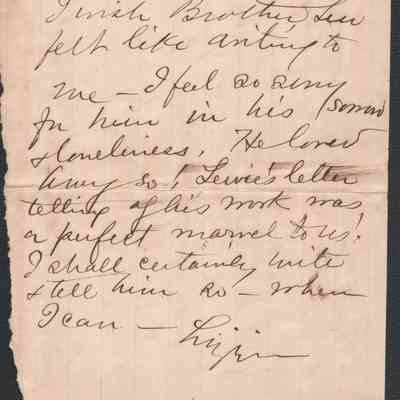 I wish Brother Lew
felt like writing to
me — I feel so sorry
for him in his sorrow
& loneliness. He loved
Amy so! Lewie's letter
telling of his work was
a perfect marvel to us!
I shall certainly write
& tell him so — when
I can — Lizzie